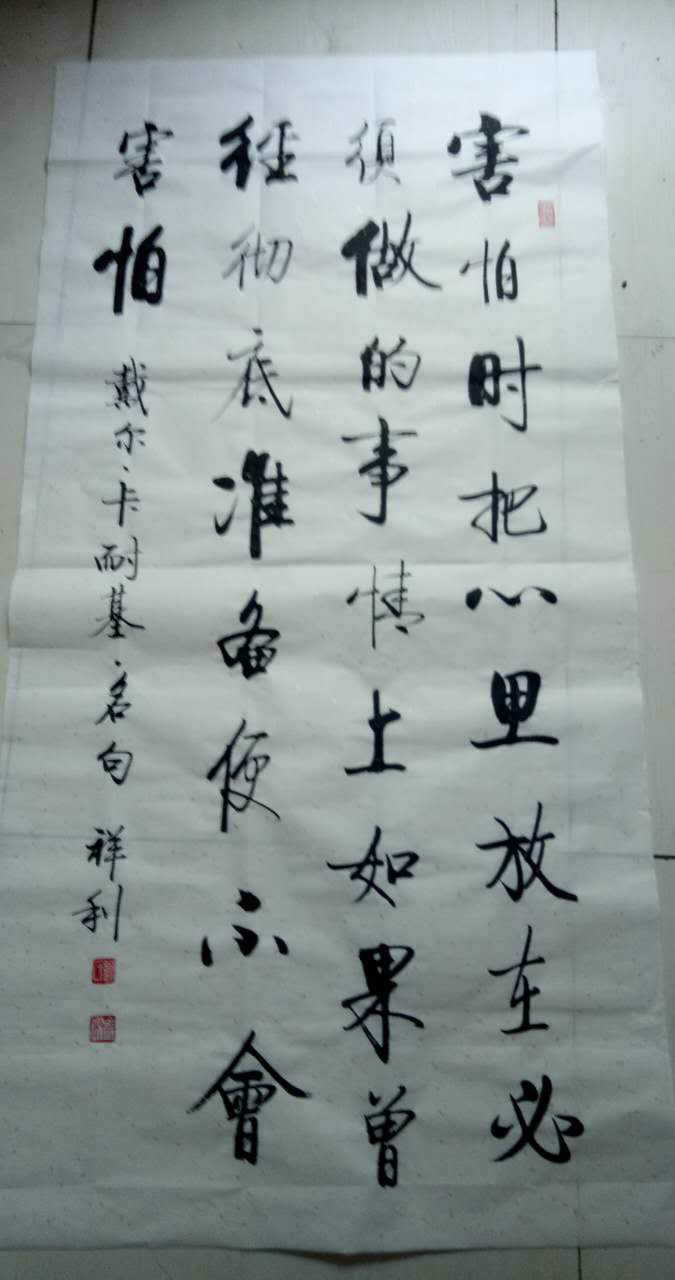 害怕时把心里放在必
须做的事情上如果曾
径彻底准备便不會
害怕
戴尔·卡耐基·名句 祥利